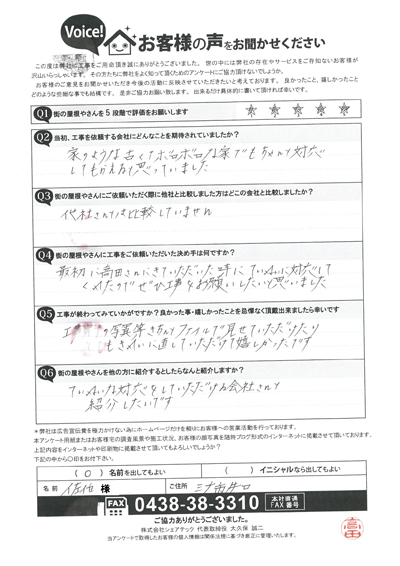 Voice!
お客様の声をお聞かせください
この度は弊社に工事をご用命頂き誠にありがとうございました。世の中には弊社の存在やサービスをご存知ないお客様が
沢山いらっしゃいます。その方たちに弊社をよく知って頂くためのアンケートにご協力頂けないでしょうか。
お客様のご意見をお聞かせいただき今後の活動に反映させていただきたいと考えております。良かったこと、嬉しかったこと
どのような些細な事でも結構です。是非ご協力お願い致します。出来るだけ具体的に書いて頂ければ幸いです。
Q1 街の屋根やさんを5段階で評価をお願いします ☆ ☆ ☆ ☆ ☆
Q2 当初、工事を依頼する会社にどんなことを期待されていましたか?
家のような古くてボロボロな家でもちゃんと対応
してもらえると思っていました
Q3 街の屋根やさんにご依頼いただく際に他社と比較しました方はどこの会社と比較しましたか?
他社さんとは比較していません
Q4 街の屋根やさんに工事をご依頼いただいた決め手は何ですか?
最初に高田さんにきていただいた時にていねいに対応して
くれたのでぜひ工事をお願いしたいと思いました
Q5 工事が終わってみていかがですか?良かった事・嬉しかったことを忌憚なく頂戴出来ましたら幸いです
の写真等きちんとファイルで見せていただけたり
きれいに直していただけて嬉しかったです
Q6 街の屋根やさんを他の方に紹介するとしたらなんと紹介しますか?
ていねいな対応をしていただける会社さんと
紹介したいです
*弊社は広告宣伝費を極力かけない為にホームページだけを頼りにお客様への営業活動を行っております。
本アンケート用紙またはお客様宅の調査風景や施工状況、お客様の顔写真を随時ブログ形式のインターネットに掲載させて頂いております。
上記内容をインターネットや印刷物に掲載させて頂いてもよろしいでしょうか?
下記の中から〇印をお付け下さい。
( 〇 ) 名前を出してもよい ( ) イニシャルなら出してもよい
名前 佐他 様 ご住所
FAX 0438-38-3310 本社直通 FAX番号
ご協力ありがとうございました。
株式会社シェアテック 代表取締役 大久保 誠二
当アンケートで取得したお客様の個人情報は関係法規に基づき厳正に管理いたします。